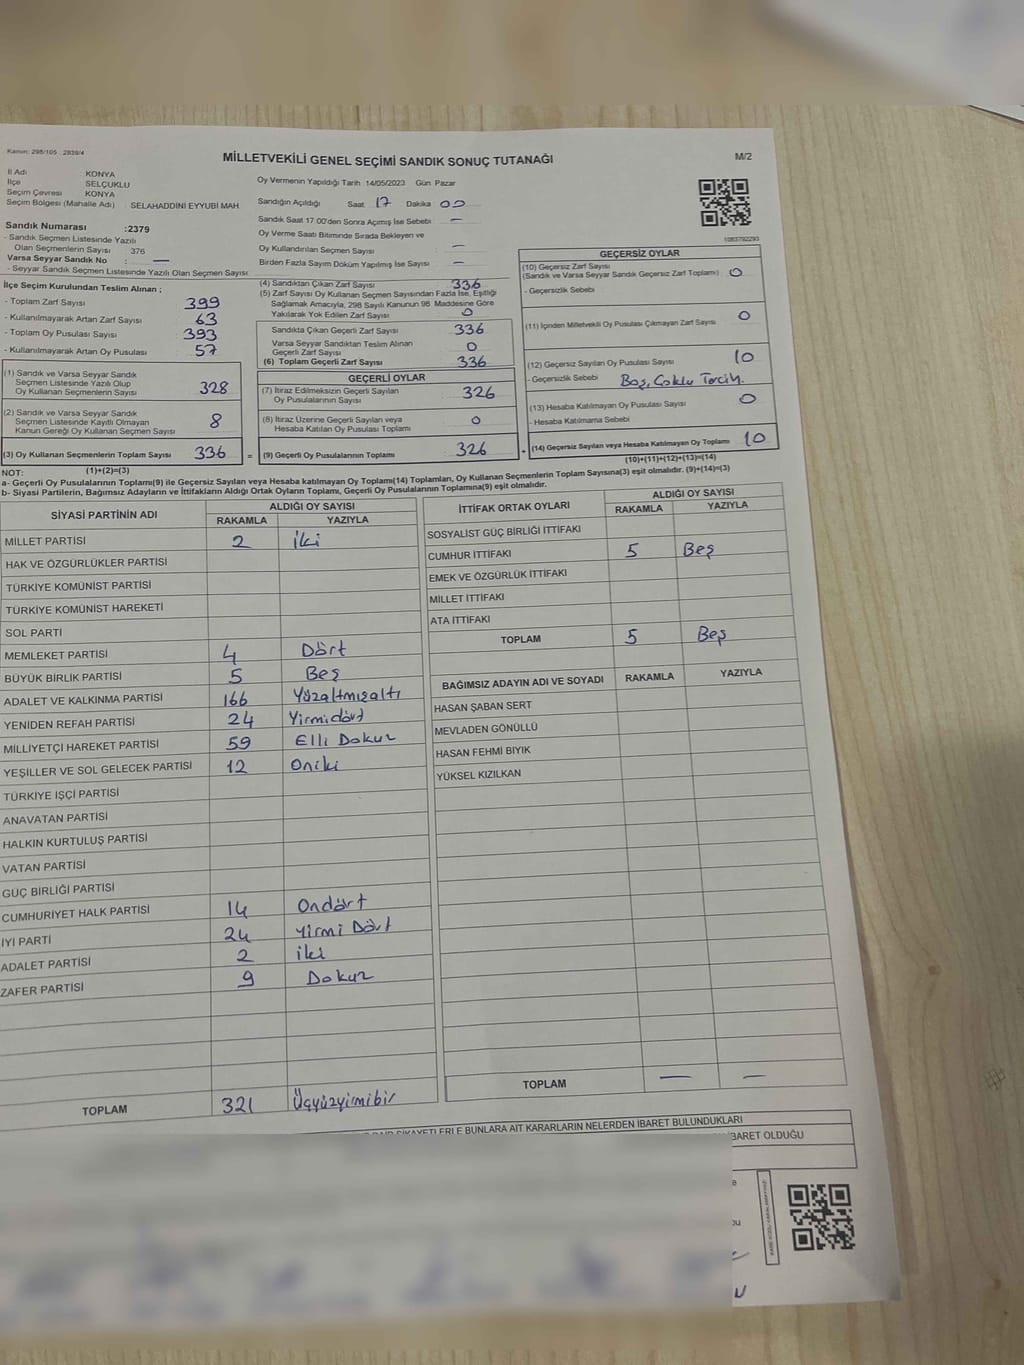 Kanun: 298/105 : 2839/4
MİLLETVEKİLİ GENEL SEÇİMİ SANDIK SONUÇ TUTANAĞI
M/2
İl Adı KONYA
İlçe SELÇUKLU
Seçim Çevresi KONYA
Seçim Bölgesi (Mahalle Adı) SELAHADDİNİ EYYUBİ MAH
Oy Vermenin Yapıldığı Tarih 14/05/2023 Gün Pazar
Sandığın Açıldığı Saat 17 Dakika 00
Sandık Saat 17.00'den Sonra Açımış İse Sebebi —
Oy Verme Saati Bitiminde Sırada Bekleyen ve
Oy Kullandırılan Seçmen Sayısı —
Birden Fazla Sayım Döküm Yapılmış İse Sayısı —
1083792293
Sandık Numarası :2379
- Sandık Seçmen Listesinde Yazılı
Olan Seçmenlerin Sayısı 376
Varsa Seyyar Sandık No : —
- Seyyar Sandık Seçmen Listesinde Yazılı Olan Seçmen Sayısı
İlçe Seçim Kurulundan Teslim Alınan ;
- Toplam Zarf Sayısı 399
- Kullanılmayarak Artan Zarf Sayısı 63
- Toplam Oy Pusulası Sayısı 393
- Kullanılmayarak Artan Oy Pusulası 57
(1) Sandık ve Varsa Seyyar Sandık
Seçmen Listesinde Yazılı Olup
Oy Kullanan Seçmenlerin Sayısı 328
(2) Sandık ve Varsa Seyyar Sandık
Seçmen Listesinde Kayıtlı Olmayan
Kanun Gereği Oy Kullanan Seçmen Sayısı 8
(3) Oy Kullanan Seçmenlerin Toplam Sayısı 336 =
(1)+(2)=(3)
(4) Sandıktan Çıkan Zarf Sayısı 336
(5) Zarf Sayısı Oy Kullanan Seçmen Sayısından Fazla İse, Eşitliği
Sağlamak Amacıyla, 298 Sayılı Kanunun 98. Maddesine Göre
Yakılarak Yok Edilen Zarf Sayısı 0
Sandıkta Çıkan Geçerli Zarf Sayısı 336
Varsa Seyyar Sandıktan Teslim Alınan
Geçerli Zarf Sayısı 0
(6) Toplam Geçerli Zarf Sayısı 336
GEÇERLİ OYLAR
(7) İtiraz Edilmeksizin Geçerli Sayılan
Oy Pusulalarının Sayısı 326
(8) İtiraz Üzerine Geçerli Sayılan veya
Hesaba Katılan Oy Pusulası Toplamı 0
(9) Geçerli Oy Pusulalarının Toplamı 326 +
GEÇERSİZ OYLAR
(10) Geçersiz Zarf Sayısı
(Sandık ve Varsa Seyyar Sandık Geçersiz Zarf Toplamı) 0
- Geçersizlik Sebebi
(11) İçinden Milletvekili Oy Pusulası Çıkmayan Zarf Sayısı 0
(12) Geçersiz Sayılan Oy Pusulası Sayısı 10
- Geçersizlik Sebebi Boş, Çoklu Tercih.
(13) Hesaba Katılmayan Oy Pusulası Sayısı 0
- Hesaba Katılmama Sebebi
(14) Geçersiz Sayılan veya Hesaba Katılmayan Oy Toplamı 10
(10)+(11)+(12)+(13)=(14)
NOT:
a- Geçerli Oy Pusulalarının Toplamı(9) ile Geçersiz Sayılan veya Hesaba katılmayan Oy Toplamı(14) Toplamları, Oy Kullanan Seçmenlerin Toplam Sayısına(3) eşit olmalıdır. (9)+(14)=(3)
b- Siyasi Partilerin, Bağımsız Adayların ve İttifakların Aldığı Ortak Oyların Toplamı, Geçerli Oy Pusulalarının Toplamına(9) eşit olmalıdır.
SİYASİ PARTİNİN ADI ALDIĞI OY SAYISI
RAKAMLA YAZIYLA
MİLLET PARTİSİ 2 İki
HAK VE ÖZGÜRLÜKLER PARTİSİ
TÜRKİYE KOMÜNİST PARTİSİ
TÜRKİYE KOMÜNİST HAREKETİ
SOL PARTİ
MEMLEKET PARTİSİ 4 Dört
BÜYÜK BİRLİK PARTİSİ 5 Beş
ADALET VE KALKINMA PARTİSİ 166 Yüzaltmışaltı
YENİDEN REFAH PARTİSİ 24 Yirmidört
MİLLİYETÇİ HAREKET PARTİSİ 59 Elli Dokuz
YEŞİLLER VE SOL GELECEK PARTİSİ 12 Oniki
TÜRKİYE İŞÇİ PARTİSİ
ANAVATAN PARTİSİ
HALKIN KURTULUŞ PARTİSİ
VATAN PARTİSİ
GÜÇ BİRLİĞİ PARTİSİ
CUMHURİYET HALK PARTİSİ 14 Ondört
İYİ PARTİ 24 Yirmi Dört
ADALET PARTİSİ 2 iki
ZAFER PARTİSİ 9 Dokuz
TOPLAM 321 Üçyüzyirmibir
İTTİFAK ORTAK OYLARI ALDIĞI OY SAYISI
RAKAMLA YAZIYLA
SOSYALİST GÜÇ BİRLİĞİ İTTİFAKI
CUMHUR İTTİFAKI 5 Beş
EMEK VE ÖZGÜRLÜK İTTİFAKI
MİLLET İTTİFAKI
ATA İTTİFAKI
TOPLAM 5 Beş
BAĞIMSIZ ADAYIN ADI VE SOYADI RAKAMLA YAZIYLA
HASAN ŞABAN SERT
MEVLADEN GÖNÜLLÜ
HASAN FEHMİ BIYIK
YÜKSEL KIZILKAN
TOPLAM — —
ŞİKAYETLERLE BUNLARA AİT KARARLARIN NELERDEN İBARET BULUNDUKLARI
İBARET OLDUĞU